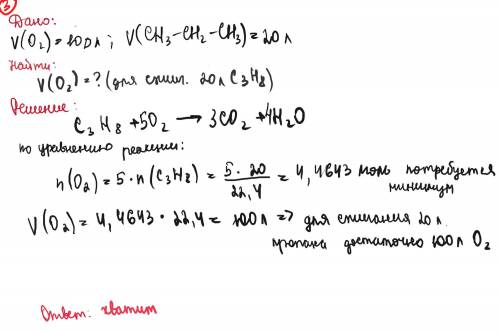 3
Дано:
V(O₂) = 100л ; V(CH₃-CH₂-CH₃) = 20л
Найти:
V(O₂) = ? (для сжиг. 20л C₃H₈)
Решение:
C₃H₈ + 5O₂ → 3CO₂ + 4H₂O
по уравнению реакции:
n(O₂) = 5 · n(C₃H₈) = 5 · 20 / 22,4 = 4,4643 моль потребуется минимум
V(O₂) = 4,4643 · 22,4 = 100л => для сжигания 20 л.
пропана достаточно 100л O₂
Ответ: хватит